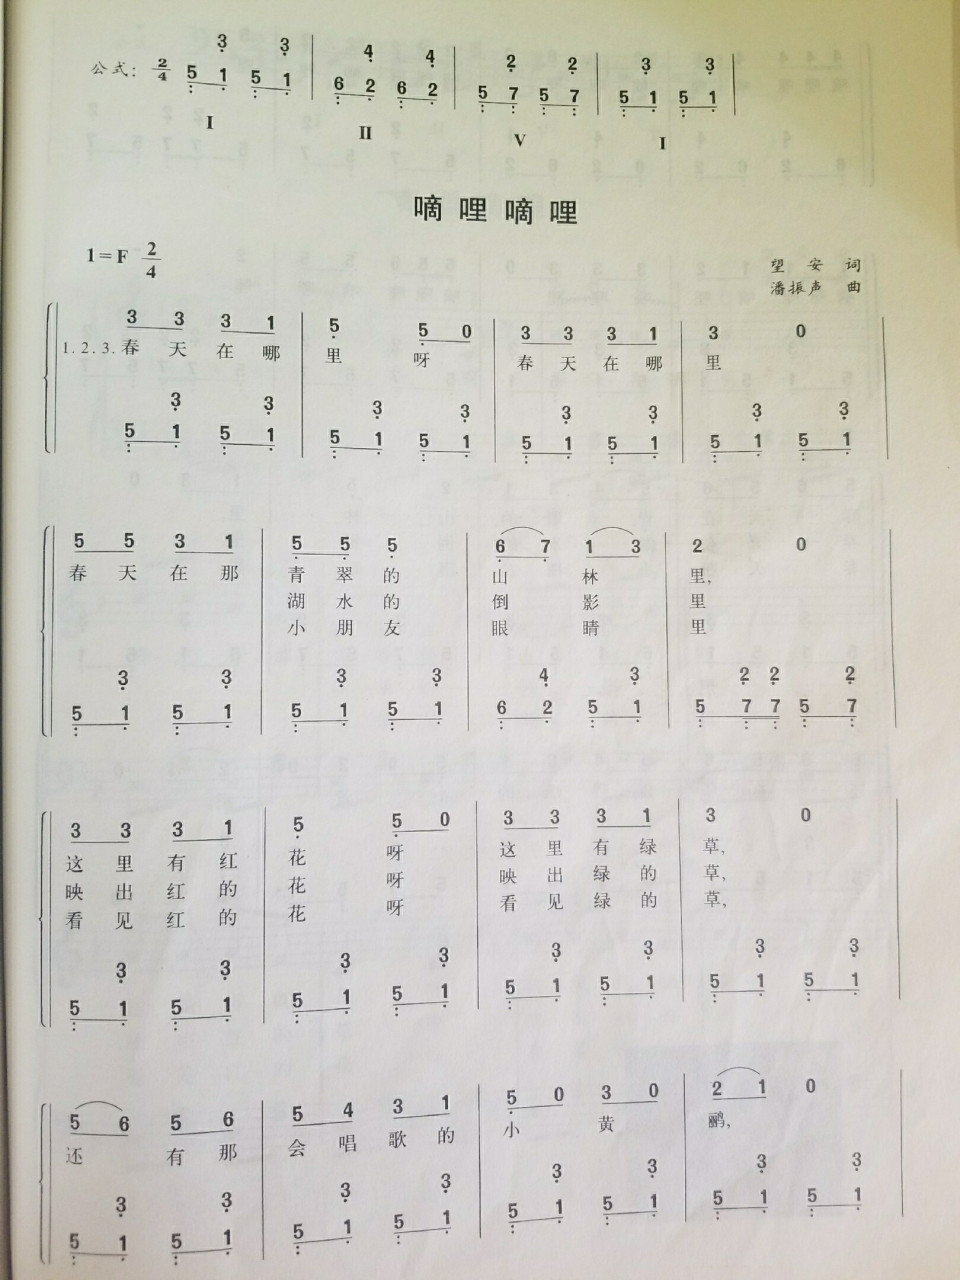 3 3 4 4 2 2 3 3
公式: 2/4 5 1 5 1 6 2 6 2 5 7 5 7 5 1 5 1
I II V I
嘀哩嘀哩
1=F 2/4
望安 词
潘振声 曲
3 3 3 1 5 5 0 3 3 3 1 3 0
1.2.3.春 天 在 哪 里 呀 春 天 在 哪 里
3 3 3 3 3 3 3 3
5 1 5 1 5 1 5 1 5 1 5 1 5 1 5 1
5 5 3 1 5 5 5 6 7 1 3 2 0
春 天 在 那 青 翠 的 山 林 里,
湖 水 的 倒 影 里
小 朋 友 眼 睛 里
3 3 3 3 4 3 2 2 2
5 1 5 1 5 1 5 1 6 2 5 1 5 7 7 5 7
3 3 3 1 5 5 0 3 3 3 1 3 0
这 里 有 红 花 呀 这 里 有 绿 草,
映 出 红 的 花 呀 映 出 绿 的 草,
看 见 红 的 花 呀 看 见 绿 的 草,
3 3 3 3 3 3 3 3
5 1 5 1 5 1 5 1 5 1 5 1 5 1 5 1
5 6 5 6 5 4 3 1 5 0 3 0 2 1 0
还 有 那 会 唱 歌 的 小 黄 鹂,
3 3 3 3 3 3 3 3
5 1 5 1 5 1 5 1 5 1 5 1 5 1 5 1